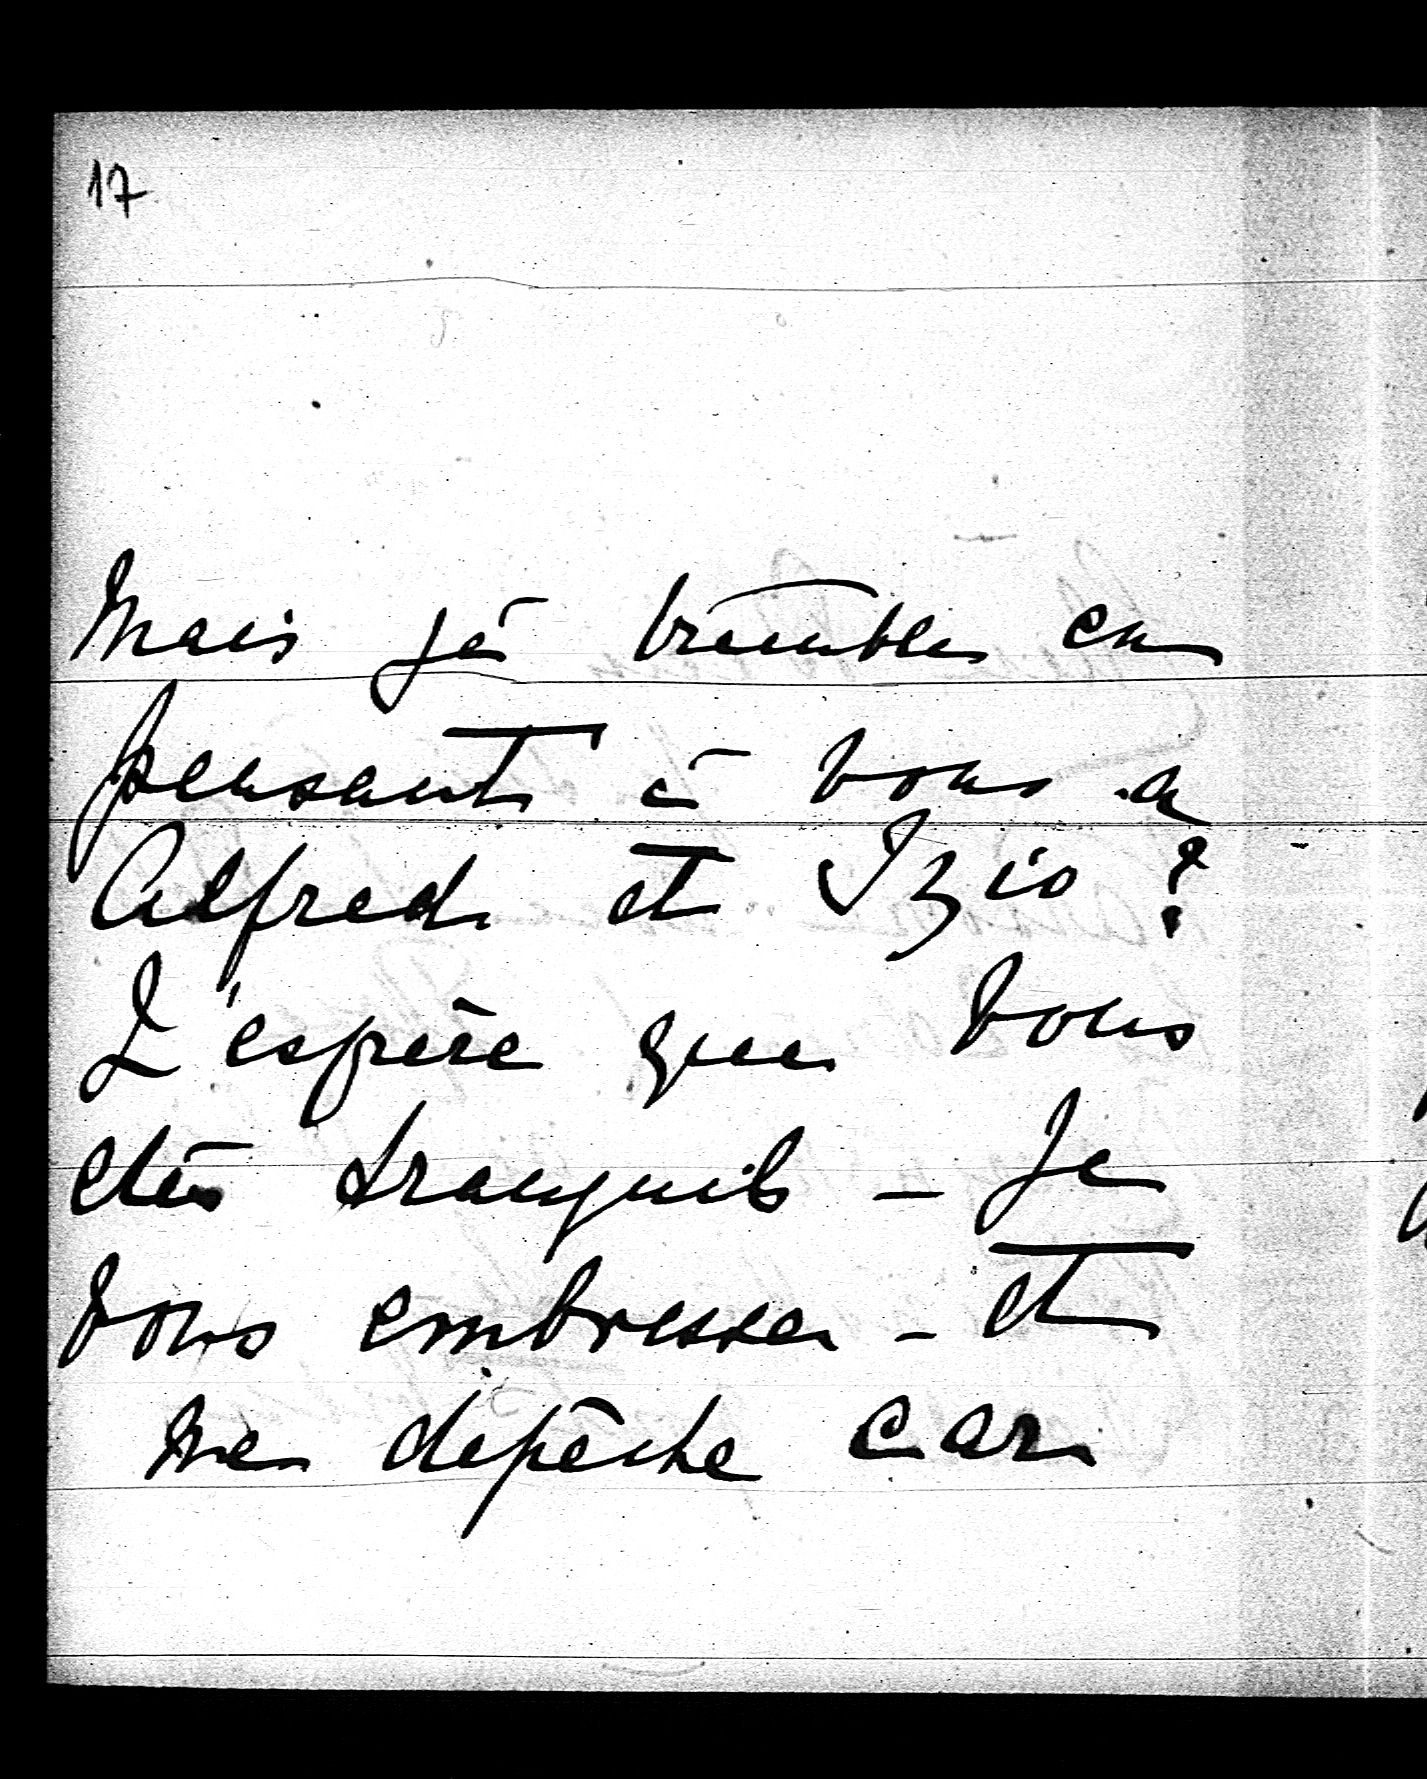 17
Mais je tremble en
pensant à vous à
Alfred et Izio ?
J'espère que vous
êtes tranquils – Je
vous embrasse – et
me dépêche car